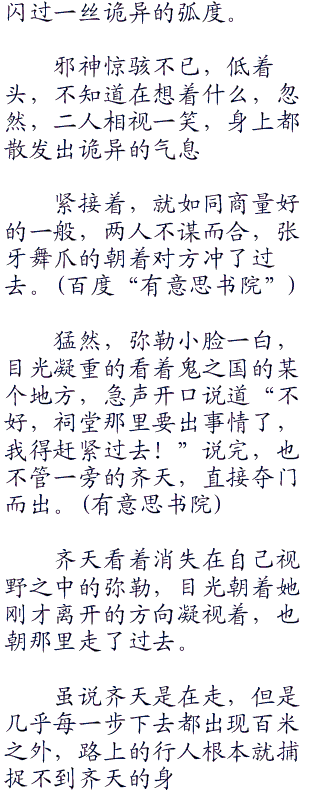 闪过一丝诡异的弧度。
邪神惊骇不已，低着
头，不知道在想着什么，忽
然，二人相视一笑，身上都
散发出诡异的气息
紧接着，就如同商量好
的一般，两人不谋而合，张
牙舞爪的朝着对方冲了过
去。(百度“有意思书院”)
猛然，弥勒小脸一白，
目光凝重的看着鬼之国的某
个地方，急声开口说道“不
好，祠堂那里要出事情了，
我得赶紧过去！”说完，也
不管一旁的齐天，直接夺门
而出。(有意思书院)
齐天看着消失在自己视
野之中的弥勒，目光朝着她
刚才离开的方向凝视着，也
朝那里走了过去。
虽说齐天是在走，但是
几乎每一步下去都出现百米
之外，路上的行人根本就捕
捉不到齐天的身